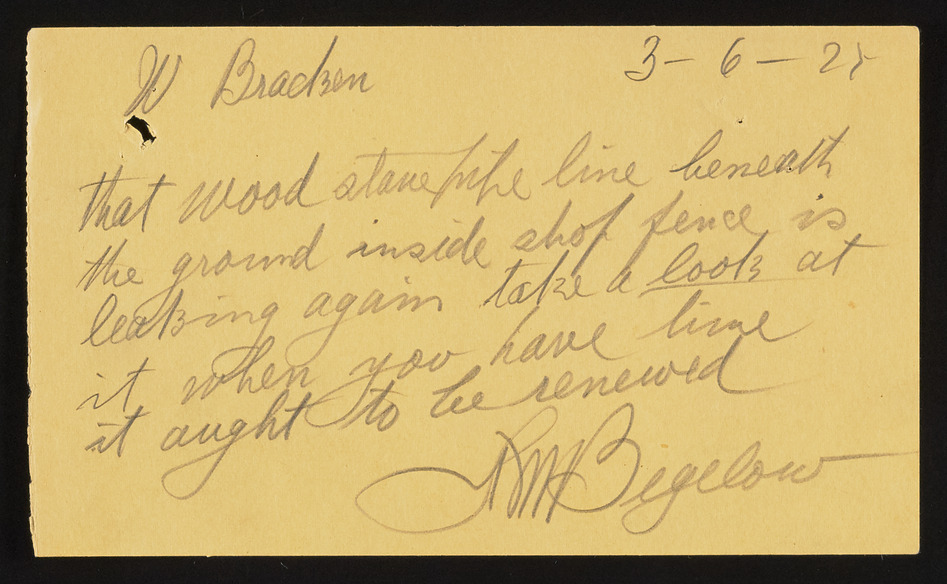 W Bracken 3-6-25
that wood stave pipe line beneath
the ground inside shop fence is
leaking again take a look at
it when you have time
it aught to be renewed
RM Bigelow